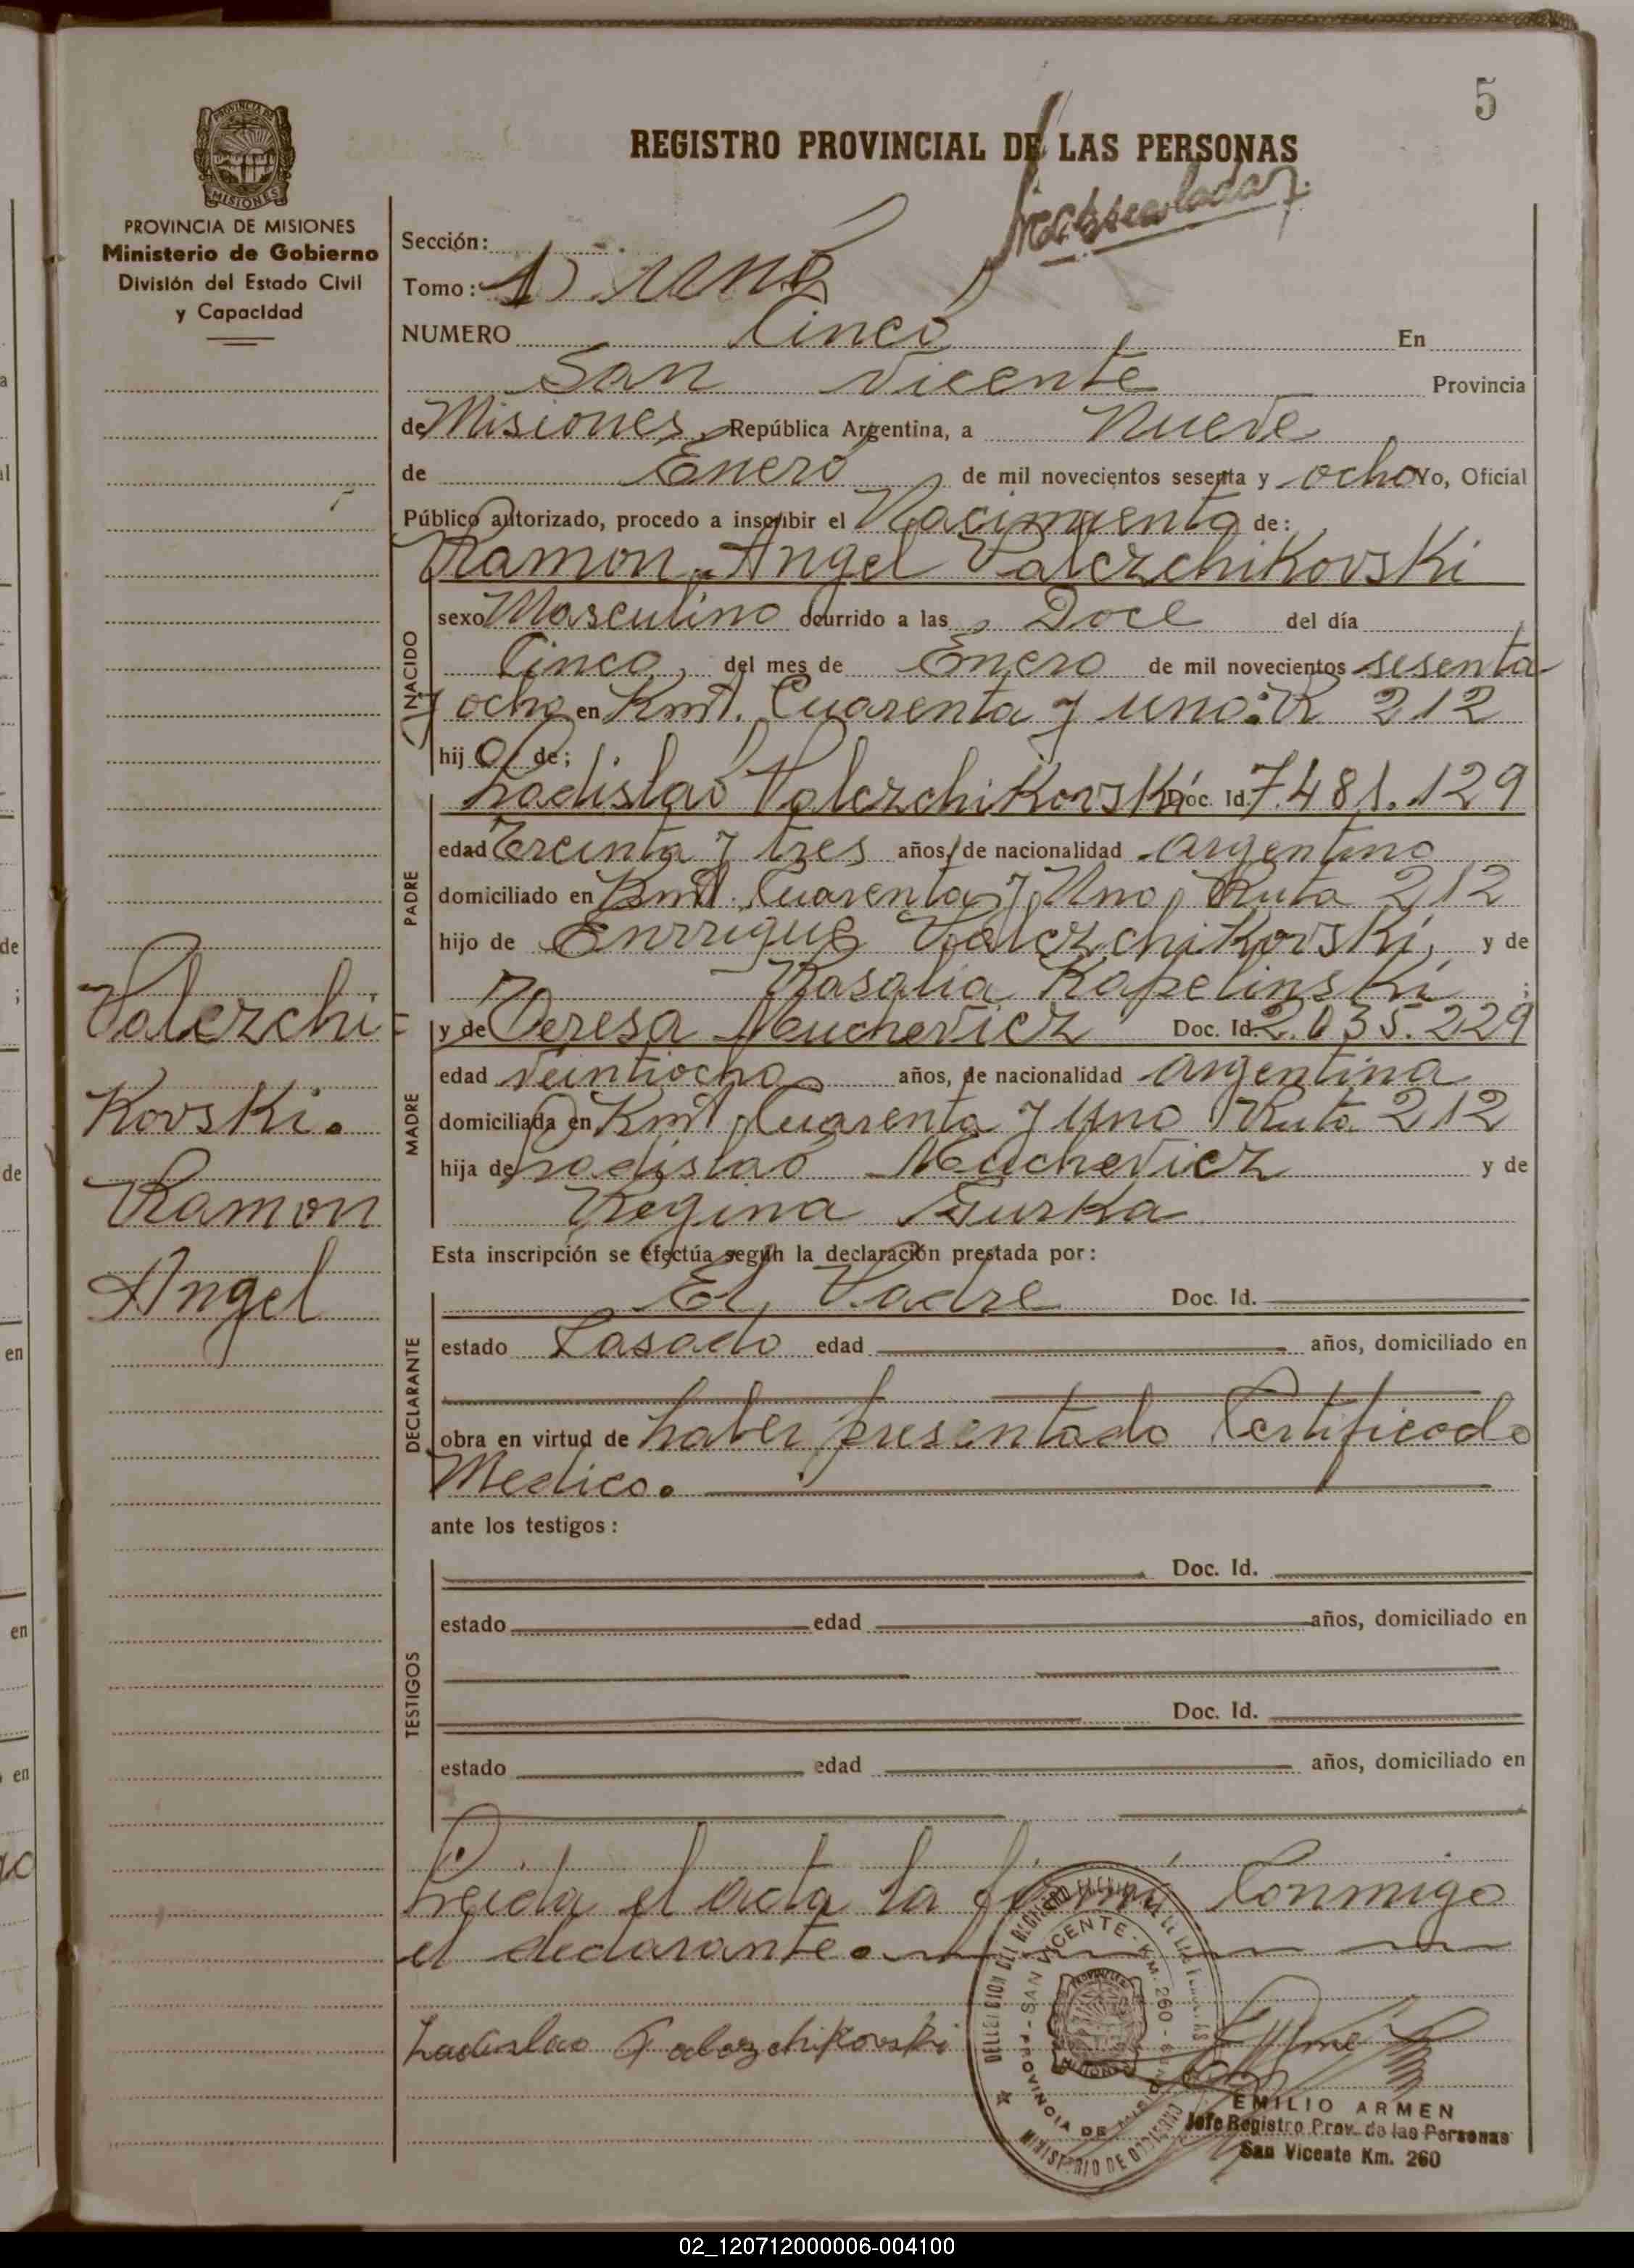 5
PROVINCIA DE MISIONES
Ministerio de Gobierno
División del Estado Civil
y Capacidad
REGISTRO PROVINCIAL DE LAS PERSONAS
Sección:
Tomo: 1) uno
NUMERO Cinco En
San Vicente Provincia
de Misiones, República Argentina, a Nueve
de Enero de mil novecientos sesenta y ocho Yo, Oficial
Público autorizado, procedo a inscribir el Nacimiento de:
Ramon Angel Valczchikovski
NACIDO
sexo Masculino ocurrido a las Doce del día
Cinco, del mes de Enero de mil novecientos sesenta
y ocho en Kmt. Cuarenta y uno. R 212
hijo de;
PADRE
Ladislao Valczchikovski Doc. Id. 7.481.129
edad Treinta y tres años, de nacionalidad argentino
domiciliado en Kmt. Cuarenta y Uno, Ruta 212
hijo de Enrrique Valczchikovski, y de
Rasalia Kapelinski;
MADRE
y de Teresa Muchevicz Doc. Id. 2.035.229
edad veintiocho años, de nacionalidad argentina
domiciliada en Kmt. Cuarenta y Uno Ruta 212
hija de Ladislao Muchevicz y de
Regina Gurka
Valczchi-
Kovski.
Ramon
Angel
Esta inscripción se efectúa según la declaración prestada por:
DECLARANTE
El Padre Doc. Id.
estado Casado edad años, domiciliado en
obra en virtud de haber presentado Certificado
Medico.
ante los testigos:
TESTIGOS
Doc. Id.
estado edad años, domiciliado en
Doc. Id.
estado edad años, domiciliado en
Leida el acta la firmó Conmigo
el declarante.
Ladislao Falczchikovski
SAN VICENTE - KM. 260
PROVINCIA DE MISIONES
MINISTERIO DE GOBIERNO
EMILIO ARMEN
Jefe Registro Prov. de las Personas
San Vicente Km. 260
02_120712000006-004100